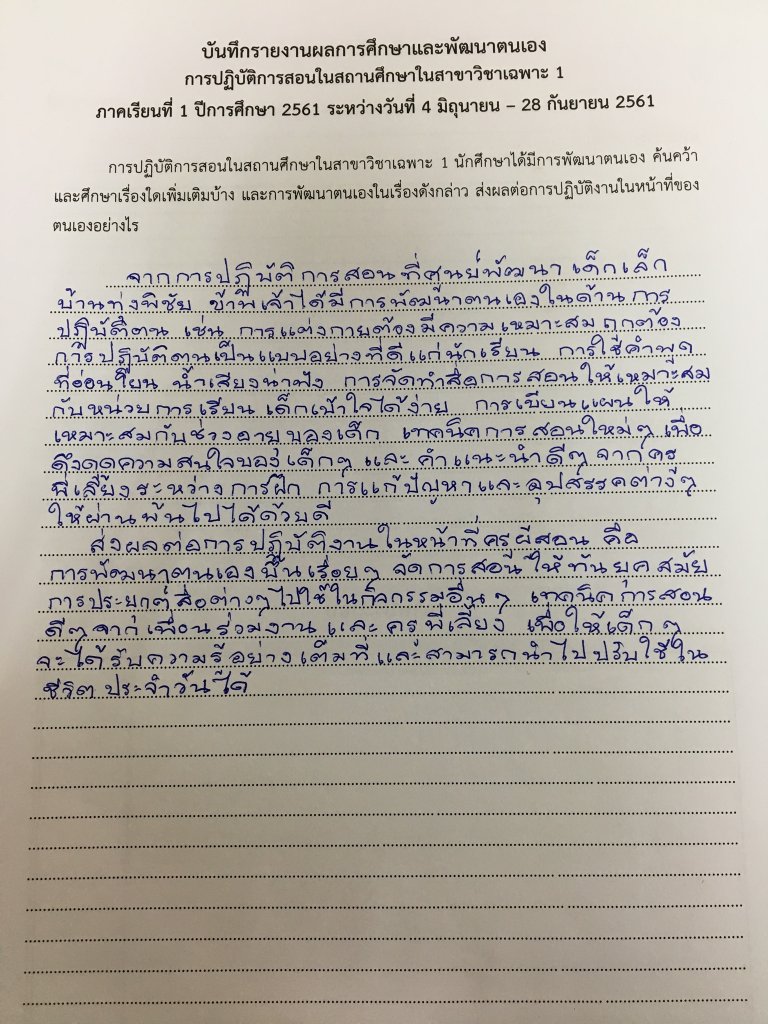 บันทึกรายงานผลการศึกษาและพัฒนาตนเอง
การปฏิบัติการสอนในสถานศึกษาในสาขาวิชาเฉพาะ 1
ภาคเรียนที่ 1 ปีการศึกษา 2561 ระหว่างวันที่ 4 มิถุนายน – 28 กันยายน 2561
การปฏิบัติการสอนในสถานศึกษาในสาขาวิชาเฉพาะ 1 นักศึกษาได้มีการพัฒนาตนเอง ค้นคว้า
และศึกษาเรื่องใดเพิ่มเติมบ้าง และการพัฒนาตนเองในเรื่องดังกล่าว ส่งผลต่อการปฏิบัติงานในหน้าที่ของ
ตนเองอย่างไร
จากการปฏิบัติการสอนที่ศูนย์พัฒนาเด็กเล็ก
บ้านทุ่งพิชัย ข้าพเจ้าได้มีการพัฒนาตนเองในด้านการ
ปฏิบัติตน เช่น การแต่งกายต้องมีความเหมาะสม ถูกต้อง
การปฏิบัติตนเป็นแบบอย่างที่ดีแก่นักเรียน การใช้คำพูด
ที่อ่อนโยน น้ำเสียงน่าฟัง การจัดทำสื่อการสอนให้เหมาะสม
กับหน่วยการเรียน เด็กเข้าใจได้ง่าย การเขียนแผนให้
เหมาะสมกับช่วงอายุของเด็ก เทคนิคการสอนใหม่ๆ เพื่อ
ดึงดูดความสนใจของเด็กๆ และ คำแนะนำดีๆ จากครู
พี่เลี้ยงระหว่างการฝึก การแก้ปัญหาและอุปสรรคต่างๆ
ให้ผ่านพ้นไปได้ด้วยดี
ส่งผลต่อการปฏิบัติงานในหน้าที่ครูผู้สอน คือ
การพัฒนาตนเองขึ้นเรื่อยๆ จัดการสอนให้ทันยุคสมัย
การประยุกต์สื่อต่างๆไปใช้ในกิจกรรมอื่นๆ เทคนิคการสอน
ดีๆจากเพื่อนร่วมงาน และ ครูพี่เลี้ยง เพื่อให้เด็กๆ
จะได้รับความรู้อย่างเต็มที่และสามารถนำไปปรับใช้ใน
ชีวิตประจำวันได้